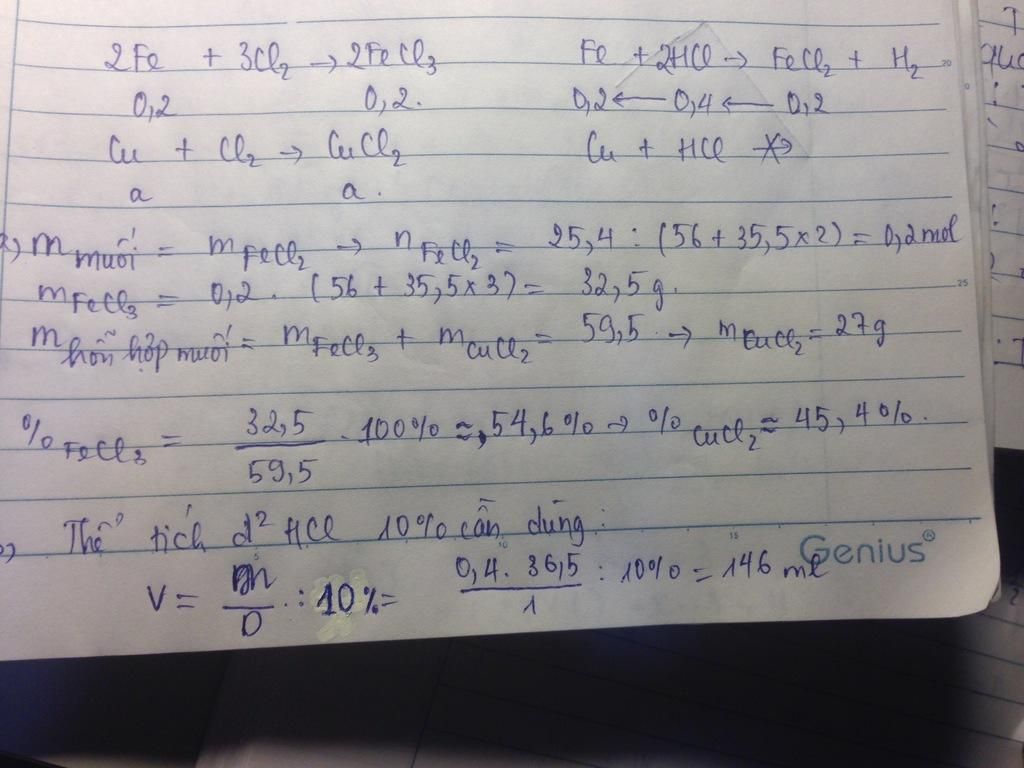 2Fe + 3Cl₂ → 2FeCl₃ Fe + 2HCl → FeCl₂ + H₂
0,2 0,2. 0,2 ← 0,4 ← 0,2
Cu + Cl₂ → CuCl₂ Cu + HCl ↛
a a.
m muối = m FeCl₂ → n FeCl₂ = 25,4 : (56 + 35,5 × 2) = 0,2 mol
m FeCl₃ = 0,2 . (56 + 35,5 × 3) = 32,5 g.
m hỗn hợp muối = m FeCl₃ + m CuCl₂ = 59,5 → m CuCl₂ = 27 g
% FeCl₃ = 32,5 / 59,5 . 100% ≈ 54,6% → % CuCl₂ ≈ 45,4%.
Thể tích d² HCl 10% cần dùng:
Genius®
V = m / D : 10% = 0,4 . 36,5 / 1 : 10% = 146 ml